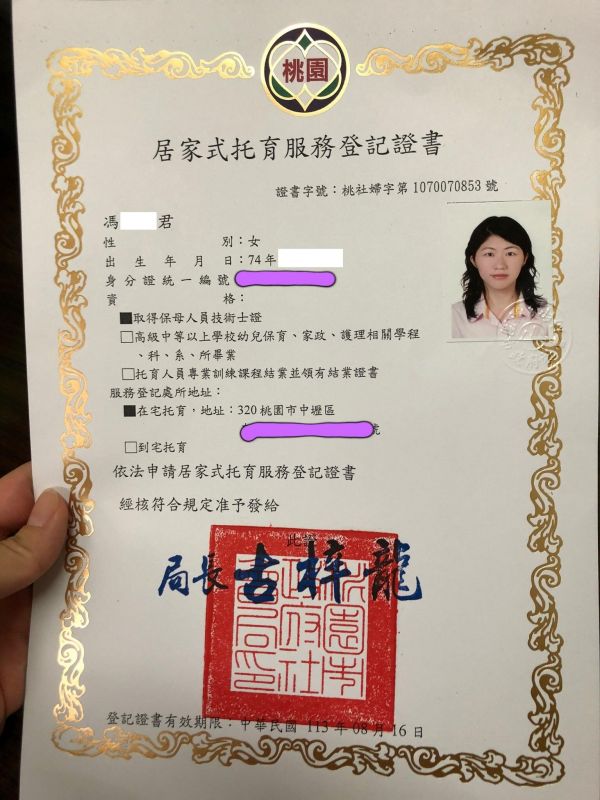 桃園
居家式托育服務登記證書
證書字號：桃社婦字第1070070853號
馮 君
性 別：女
出生年月日：74年
身分證統一編號
資 格：
■取得保母人員技術士證
□高級中等以上學校幼兒保育、家政、護理相關學程
、科、系、所畢業
□托育人員專業訓練課程結業並領有結業證書
服務登記處所地址：
■在宅托育，地址：320桃園市中壢區
號
□到宅托育
依法申請居家式托育服務登記證書
經核符合規定准予發給
此證
局長古梓龍
桃園市政府社會局印
登記證書有效期限：中華民國 113 年 08 月 16 日